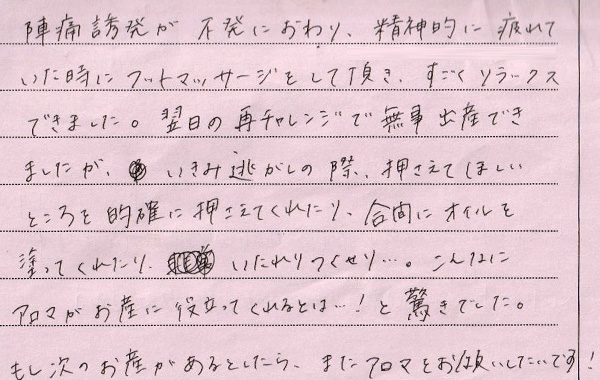 陣痛誘発が不発におわり、精神的に疲れて
いた時にフットマッサージをして頂き、すごくリラックス
できました。翌日の再チャレンジで無事出産でき
ましたが、いきみ逃がしの際、押さえてほしい
ところを的確に押さえてくれたり、合間にオイルを
塗ってくれたり、いたれりつくせり…。こんなに
アロマがお産に役立ってくれるとは…!と驚きでした。
もし次のお産があるとしたら、またアロマをお願いしたいです!